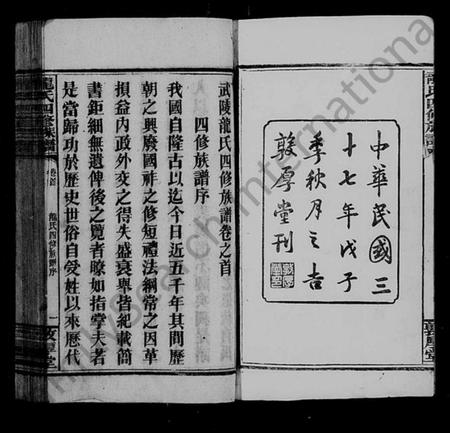 龍氏四修族譜
中華民國三
十七年戊子
季秋月之吉
敦厚堂刊
敦厚堂
武陵龍氏四修族譜卷之首
四修族譜序
我國自隆古以迄今日近五千年其間歷
朝之興廢國祚之修短禮法綱常之因革
損益內政外交之得失盛衰舉皆紀載簡
書鉅細無遺俾後之覽者瞭如指掌夫者
是當歸功於歷史世俗自受姓以來歷代
龍氏四修族譜
卷首
龍氏四修族譜序
一
敦厚堂